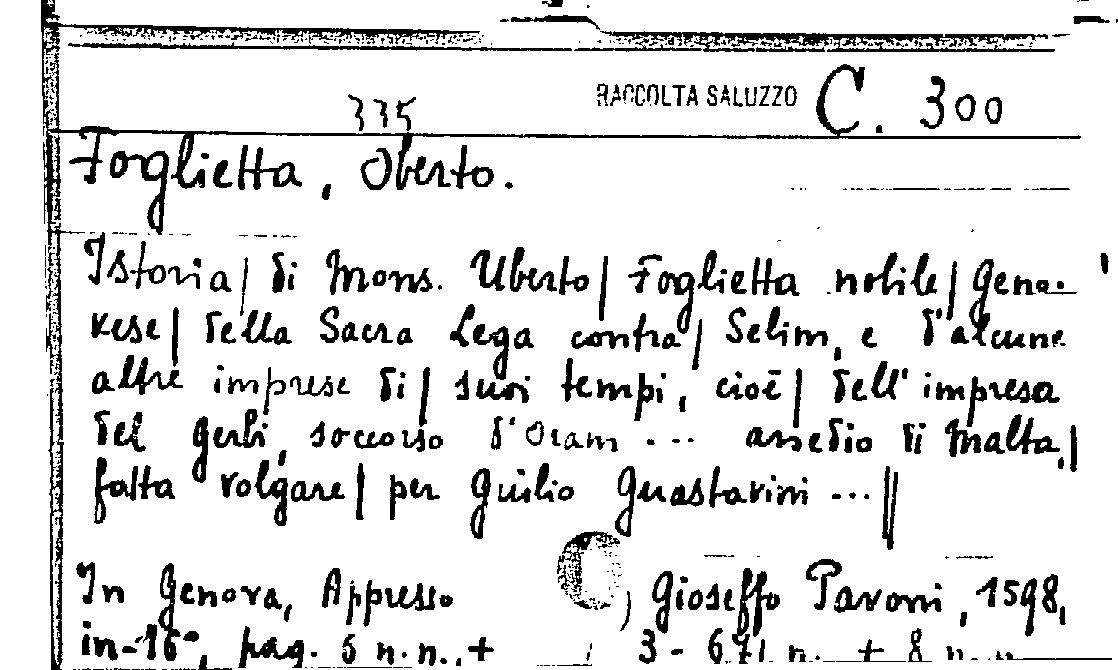 RACCOLTA SALUZZO C. 300
335
Foglietta, Oberto.
Istoria| di Mons. Uberto| Foglietta nobile| Geno-
vese| della Sacra Lega contra| Selim, e d'alcune
altre imprese di| suoi tempi, cioè| dell'impresa
del Gerbi, soccorso d'Oram ... assedio di Malta,|
fatta volgare| per Guilio Guastavini ...||
In Genova, Appresso Gioseffo Pavoni, 1598,
in-16°, pag. 5 n.n., + 3 - 671 n. + 8 n.n.